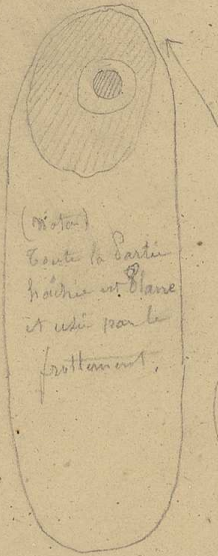 (Nota)
Toute la Partie
hachée est Blanc
et usée par le
frottement.